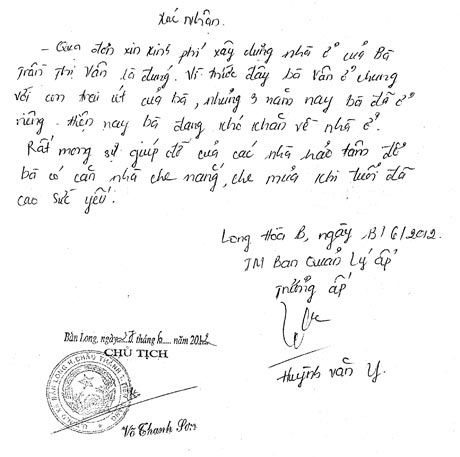 Xác Nhận.
- Qua đơn xin kinh phí xây dựng nhà ở của Bà
Trần Thị Vân là đúng. Vì trước đây bà Vân ở chung
với con trai út của bà, nhưng 3 năm nay bà đã ở
riêng. Hiện nay bà đang khó khăn về nhà ở.
Rất mong sự giúp đỡ của các nhà hảo tâm để
bà có căn nhà che nắng, che mưa khi tuổi đã
cao sức yếu.
Long Hòa B, ngày 13/6/2012.
TM Ban Quản Lý ấp
Trưởng ấp
Huỳnh Văn Y.
Bàn Long, ngày tháng 6 năm 2012
CHỦ TỊCH
U.B.N.D XÃ BÀN LONG H. CHÂU THÀNH T. TIỀN GIANG
Võ Thanh Sơn